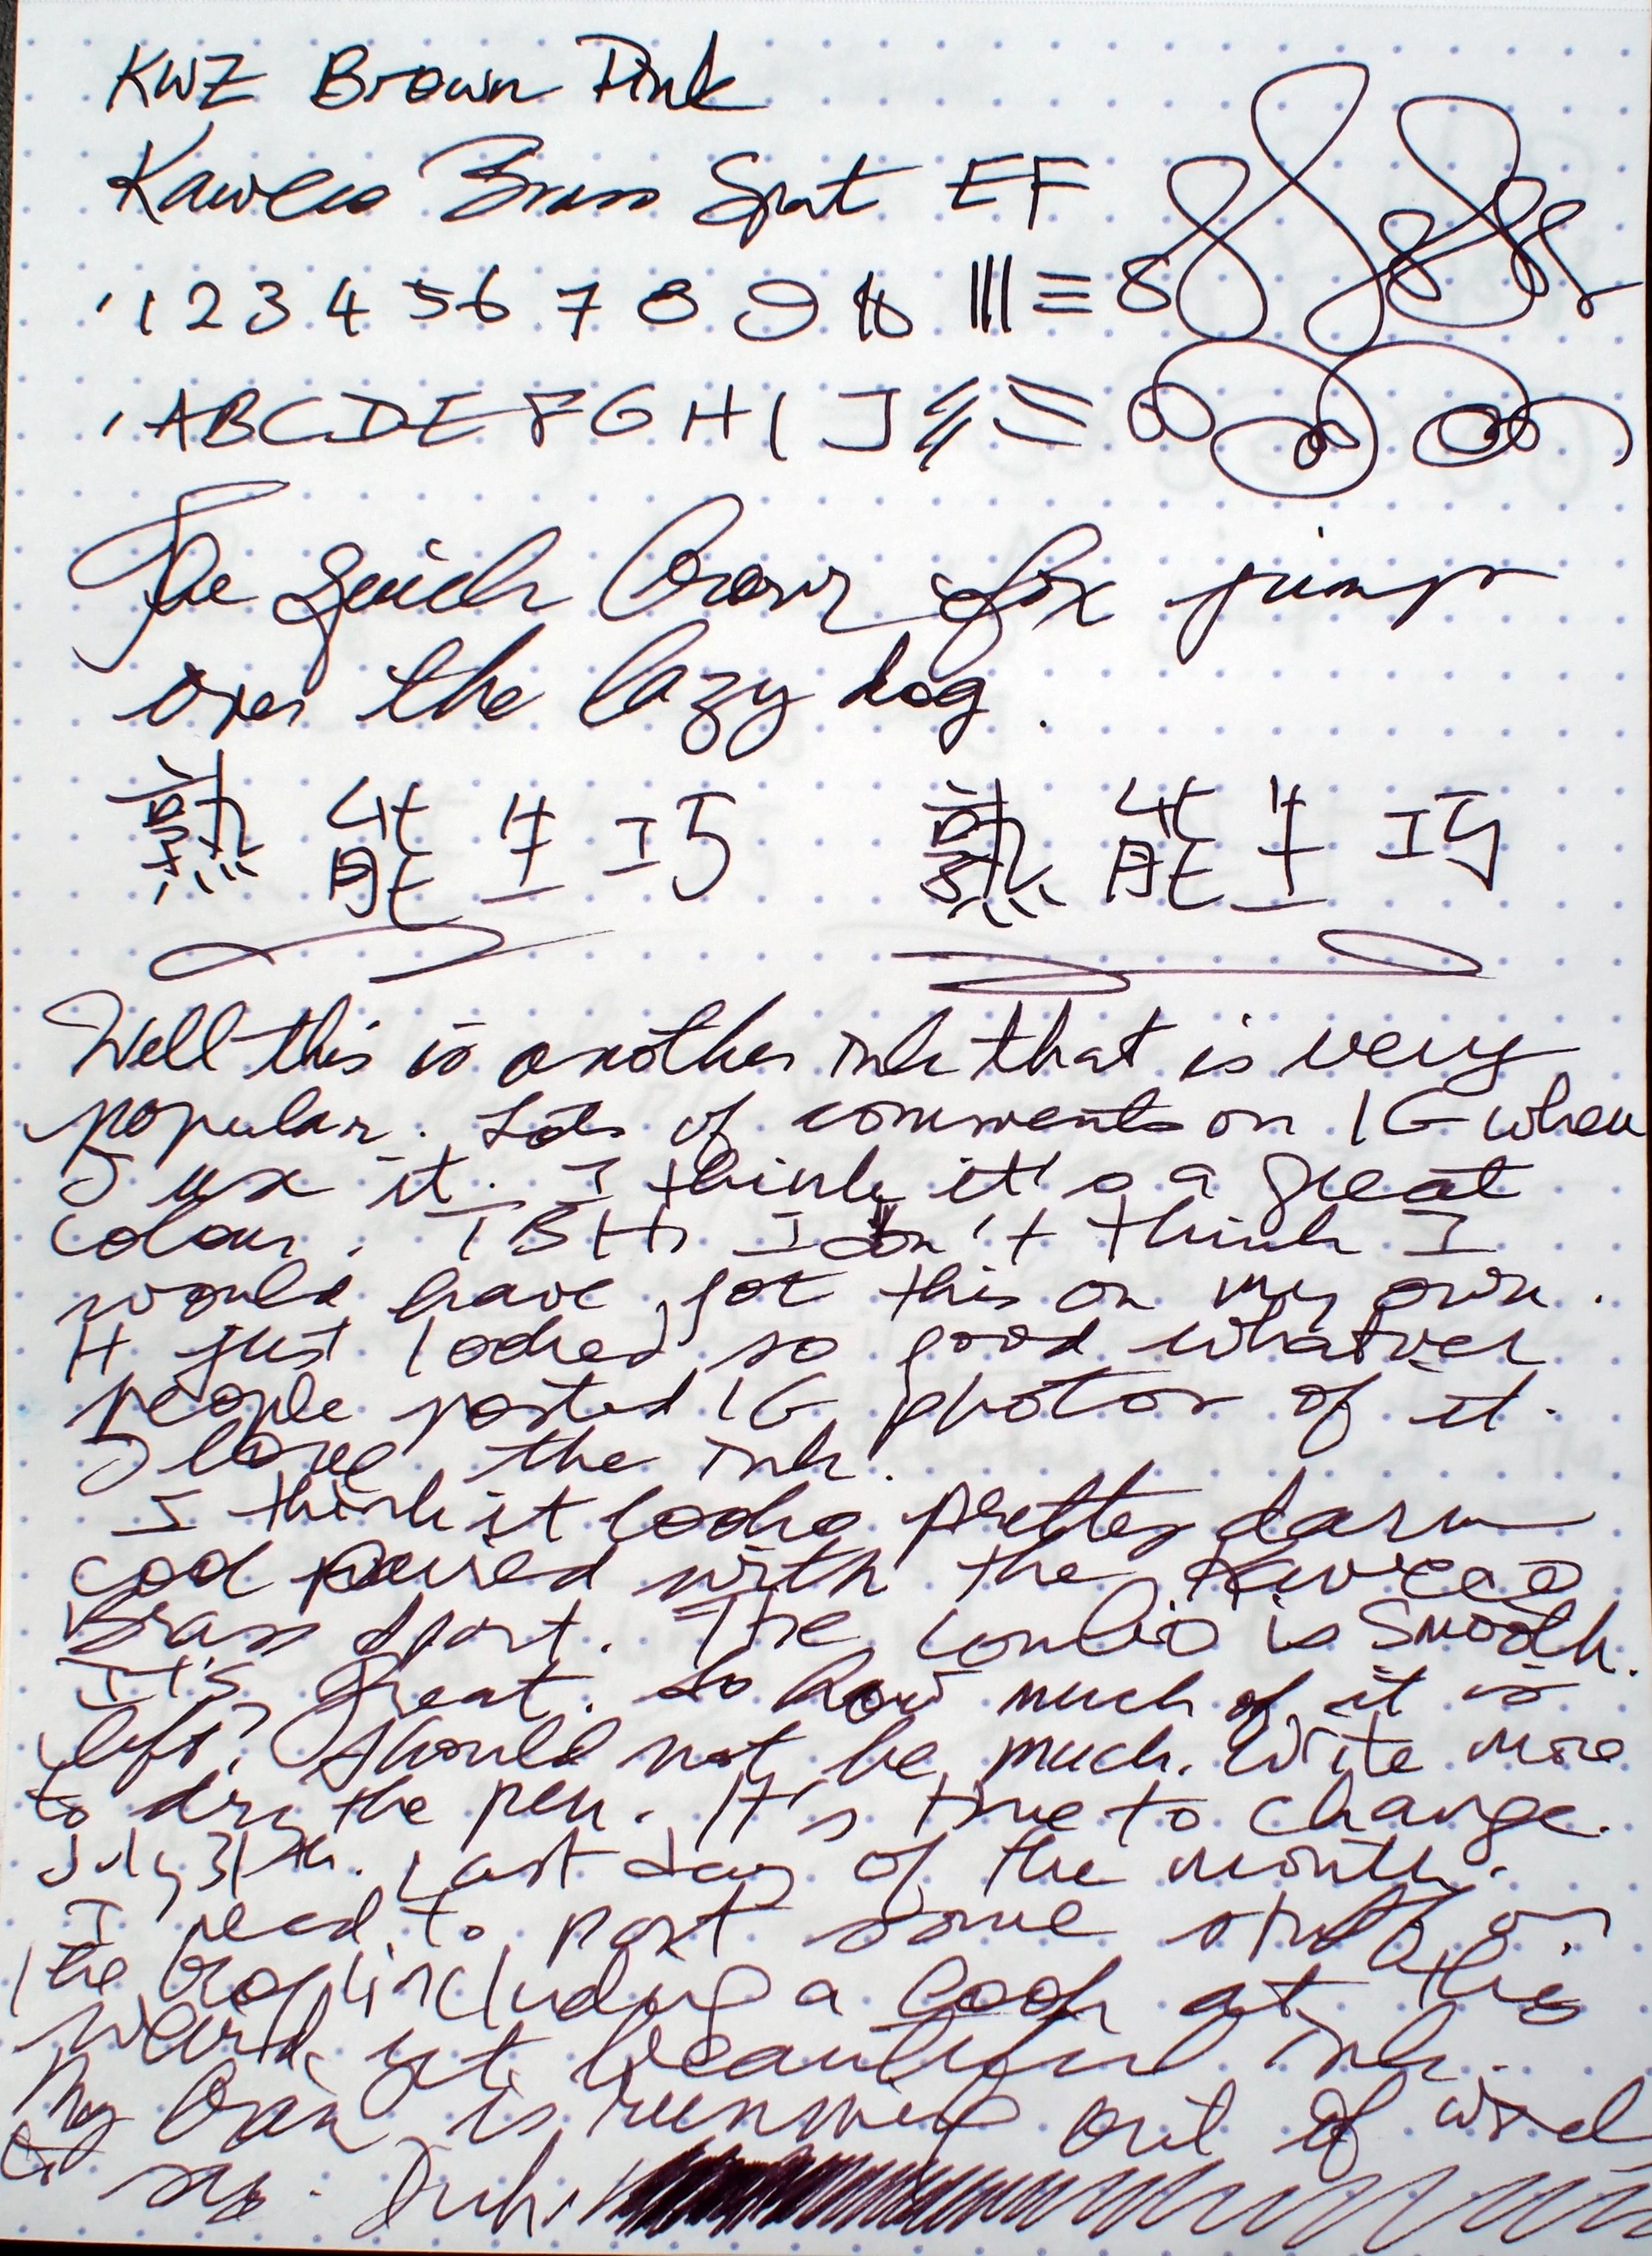 KWZ Brown Pink
Kaweco Brass Sport EF
1 2 3 4 5 6 7 8 9 10
A B C D E F G H I J
The quick brown fox jumps
over the lazy dog.
熟能生巧 熟能生巧
Well this is another ink that is very
popular. Lots of comments on IG when
I use it. I think it's a great
colour. TBH, I don't think I
would have got this on my own.
It just looked so good whatever
people posted IG photos of it.
I love the ink.
I think it looks pretty darn
cool paired with the Kaweco
Brass Sport. The combo is smooth.
It's great. So how much of it is
left? Should not be much. Write more
to dry the pen. It's time to change.
July 31th. Last day of the month.
I need to post some stuff on
the blog including a look at this
weird yet beautiful ink.
My brain is running out of word
to say.